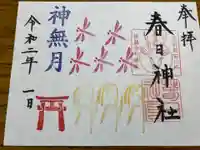 奉拝
春日神社
神無月
令和二年 一日